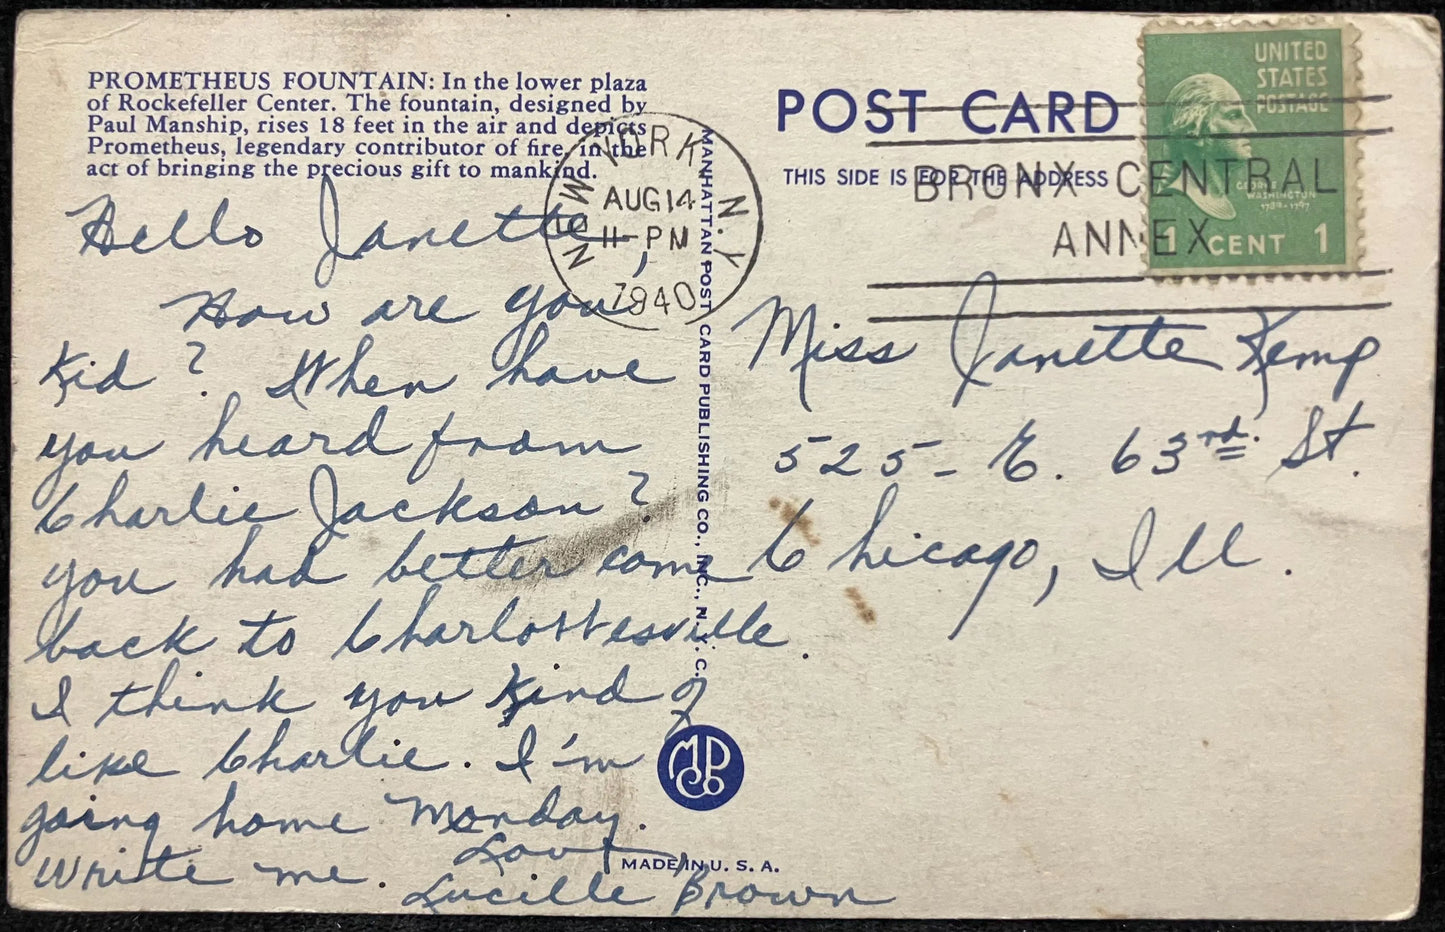 PROMETHEUS FOUNTAIN: In the lower plaza
of Rockefeller Center. The fountain, designed by
Paul Manship, rises 18 feet in the air and depicts
Prometheus, legendary contributor of fire, in the
act of bringing the precious gift to mankind.
Hello Janette,
How are you
Kid? When have
you heard from
Charlie Jackson?
you had better come
back to Charlottesville.
I think you Kind of
like Charlie. I'm
going home Monday.
Write me.
Love,
Lucille Brown
MANHATTAN POST CARD PUBLISHING CO., INC., N. Y. C.
MPCCo
MADE IN U. S. A.
POST CARD
THIS SIDE IS FOR THE ADDRESS
NEW YORK, N.Y.
AUG 14
11-PM
1940
BRONX CENTRAL
ANNEX
UNITED
STATES
POSTAGE
GEORGE
WASHINGTON
1789-1797
1 CENT 1
Miss Janette Kemp
525-E. 63rd. St.
Chicago, Ill.